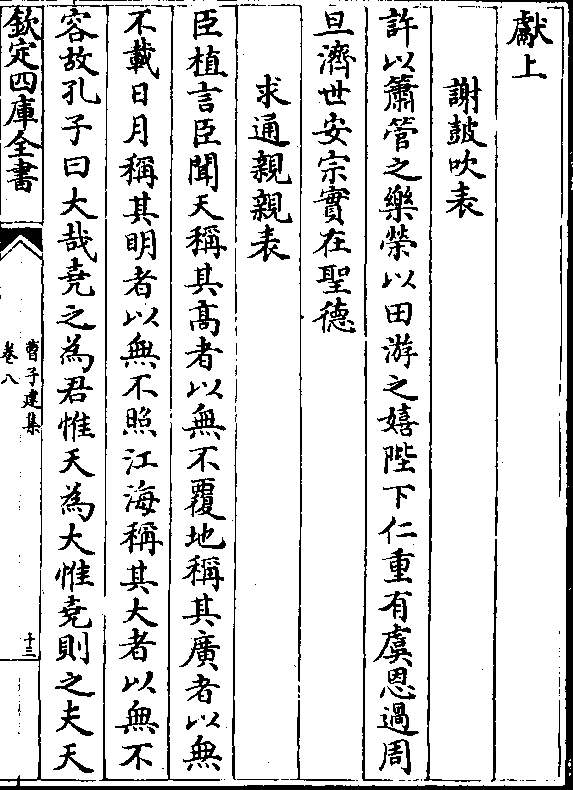 獻上
謝鼓吹表
許以簫管之樂榮以田游之嬉陛下仁重有虞恩過周
旦濟世安宗實在聖德
求通親親表
臣植言臣聞天稱其高者以無不覆地稱其廣者以無
不載日月稱其明者以無不照江海稱其大者以無不
容故孔子曰大哉堯之為君惟天為大惟堯則之夫天
欽定四庫全書
曹子建集
卷八
十三